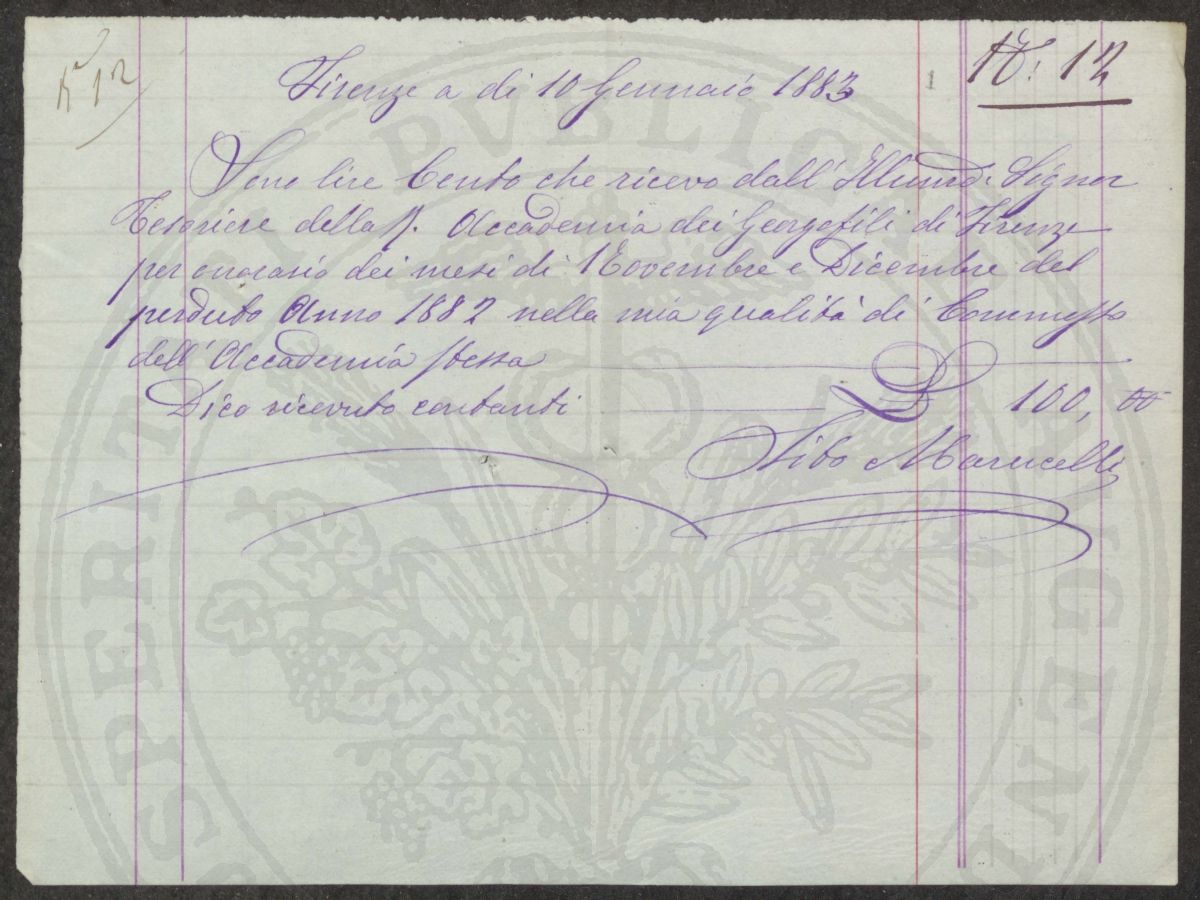 N° 12
1
N: 12
Firenze a di 10 Gennaio 1883
Sono lire Cento che ricevo dall' Illumo Signor
Tesoriere della R. Accademia dei Georgofili di Firenze
per onorario dei mesi di Novembre e Dicembre del
perduto Anno 1882 nella mia qualità di Commesso
dell' Accademia stessa
Dico ricevuto contanti £ 100, 00
Marucelli
PVBLICAE
PROSPERITATI